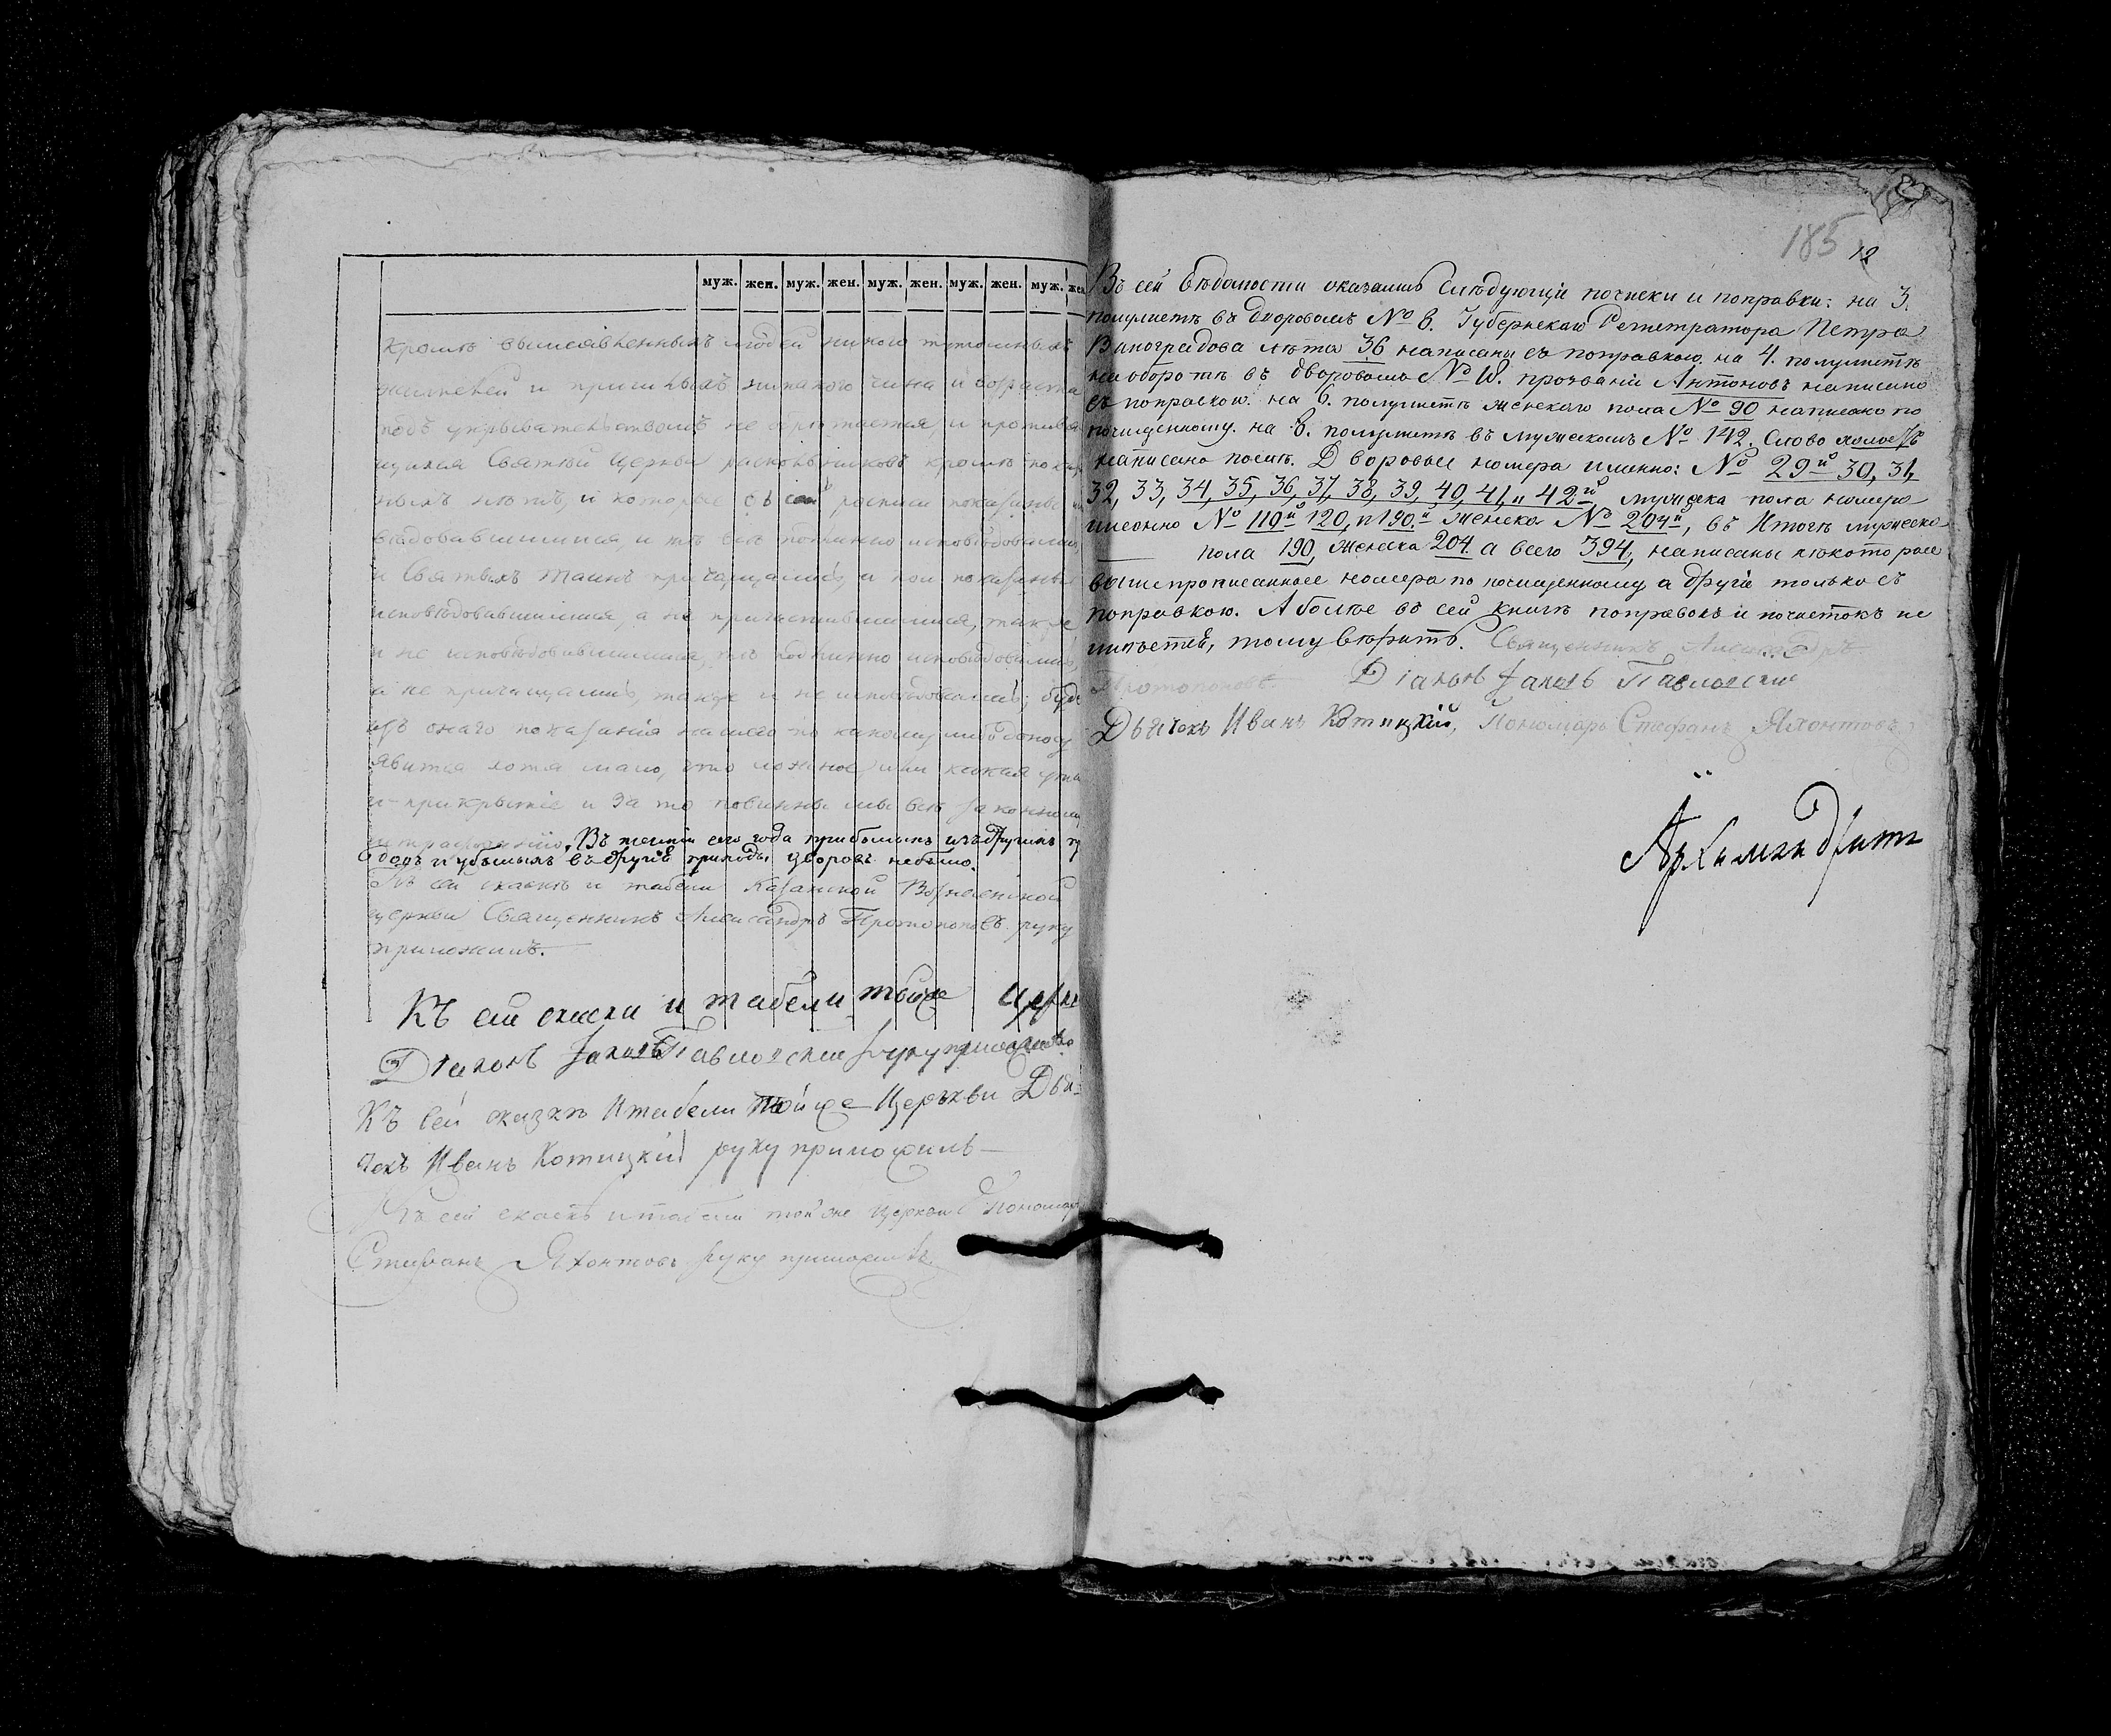 муж. жен. муж. жен. муж. жен. муж. жен. муж. жен
Кромѣ вышеявленныхъ людей никого тутошныхъ
жителей и пришлыхъ никакого чина и возраста
подъ укрывательствомъ не обретается, и противя
щихся Святѣй Церкви раскольниковъ кромѣ показан
ныхъ нѣтъ, и которые въ сей росписи показаны ис
вѣдовавшимися, и тѣ всѣ подлинно исповѣдовались,
и Святыхъ Таинъ причащались, а кои показаны
исповѣдовавшимися, а не причастившимися, также,
и не исповѣдовавшимися, тѣ подлинно исповѣдовались,
а не причащались, также и не исповѣдовались; буде
изъ онаго показанія нашего по какому либо доносу
явится хотя мало, что ложное, или какая ута
и прикрытіе и за то повинны мы всѣ законному
Въ теченіи сего года прибылыхъ изъ другихъ пр
одовъ и убылыхъ въ другіе приходы дворовъ небыло.
Къ сей скаскѣ и табели Казанской Вознесенской
церкви Священникъ Александръ Протопоповъ руку
приложилъ.
Къ сей скаски и табели тойже церкви
Діаконъ Іаковъ Павловскій руку приложилъ
Къ сей сказкѣ И табели той же Церькви Дья-
чекъ Иванъ Котицкій руку приложилъ
Къ сей скаскѣ и табели той же церкви Пономарь
Стефанъ Яхонтовъ руку приложилъ.
185
12
Въ сей вѣдомости оказались Слѣдующіе почиски и поправки: на 3.
полулистѣ въ дворовомъ № 8. Губернскаго Регистратора Петра
Виноградова лѣта 36 написаны съ поправкою. на 4. полулистѣ
на оборотѣ въ дворовомъ № 10. прозваніи Антоновъ написано
съ поправкою. на 6. полулистѣ женскаго пола № 90 написано по
почищенному. на 8. полулистѣ въ мужескомъ № 142. Слово холостъ
написано послѣ. Дворовые номера именно: № 29й 30, 31,
32, 33, 34, 35, 36, 37, 38, 39, 40, 41, и 42й, мужеска пола номера
именно № 119й 120, и 190.й женска № 204й, въ Итогѣ мужеска
пола 190, женска 204. а всего 394, написаны нѣкоторые
вышепрописанные номера по почищенному а другіе только съ
поправкою. А болѣе въ сей книгѣ поправокъ и почистокъ не
имѣется, тому вѣрить. Священникъ Александръ
Протопоповъ Діаконъ Іаковъ Павловскій
Дьячекъ Иванъ Котицкій, Пономарь Стефанъ Яхонтовъ
Архимандритъ